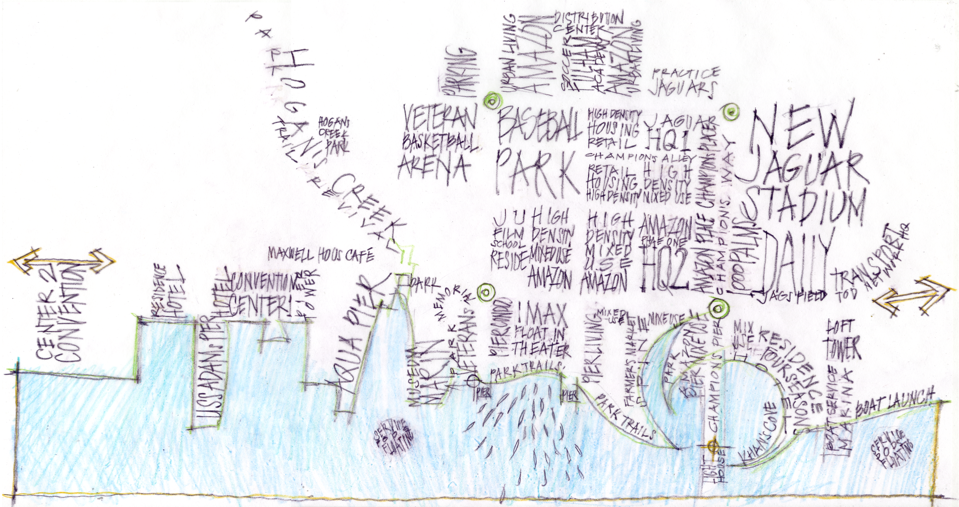 PARK
HOGAN'S
CREEK
TRAIL
HOGANS
CREEK
PARK
PARKING
URBAN LIVING
AMAZON
DISTRIBUTION
CENTER
SOCCER
FULHAM
ACADEMY
AMAZON
URBAN LIVING
PRACTICE
JAGUARS
VETERAN
BASKETBALL
ARENA
BASEBALL
PARK
HIGH DENSITY
HOUSING
RETAIL
JAGUAR
HQ1
CHAMPIONS ALLEY
RETAIL
HOUSING
HIGH DENSITY
HIGH
DENSITY
MIXED USE
CHAMPIONS WAY
NEW
JAGUAR
STADIUM
JU
FILM
SCHOOL
RESIDE
HIGH
DENSITY
MIXED USE
AMAZON
HIGH
DENSITY
MIXED
USE
AMAZON
AMAZON
PHASE ONE
HQ2
100 PALMS
DAILY
JAGS FIELD
TRANSPORT
TOD
CENTER 2
CONVENTION
RESIDENCE
HOTEL
USS ADAMS PIER
HOTEL
CONVENTION
CENTER 1
TOWER
MAXWELL HOUS CAFÉ
AQUA PIER
PARK
MUSEUM
PARK
VETERANS
PIER ONE
IMAX
FLOAT IN
THEATER
PARK TRAILS
PIER
PIER
PIER LIVING
MIXED USE
FARMERS MARKET
MIXED USE
PARK
PARK TRAILS
CHAMPIONS PIER
MIX
USE
RESIDENCE
FOUR SEASONS
HOTEL
KHANS COVE
LOFT
TOWER
MARINA
BOAT LAUNCH
FLOATING
FLOATING